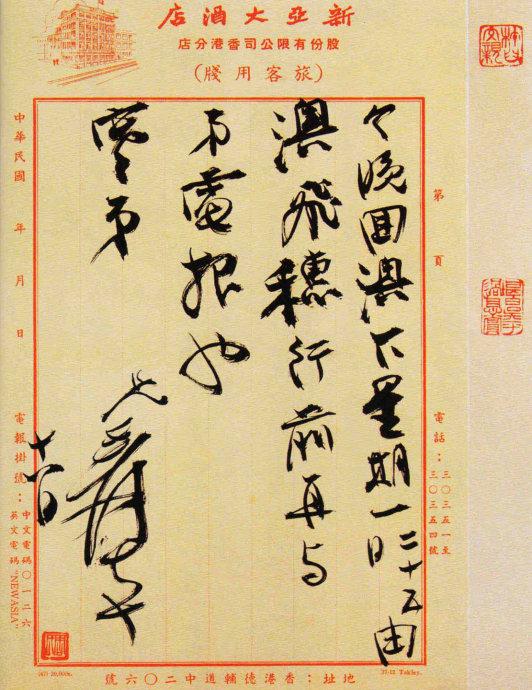 新亞大酒店
股份有限公司香港分店
(旅客用牋)
第 頁
電話：三〇三五一至
三〇三五四號
今晚回澳下星期一二十五日由
澳飛穗行前再与
弟電報也
夢弟
兄爰
中華民國 年 月 日
電報掛號：中文電碼〇一二六
英文電碼 "NEWASIA"
地址：香港德輔道中二〇六號